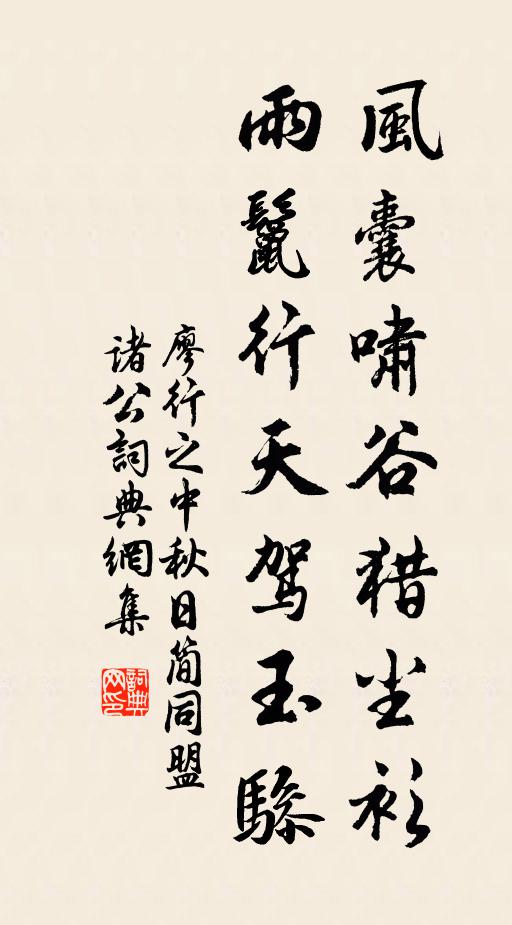 風囊啸谷猎尘衫
雨鬣行天駕玉驂
廖行之中秋日简同盟
諸公詞典網集
詞典网印